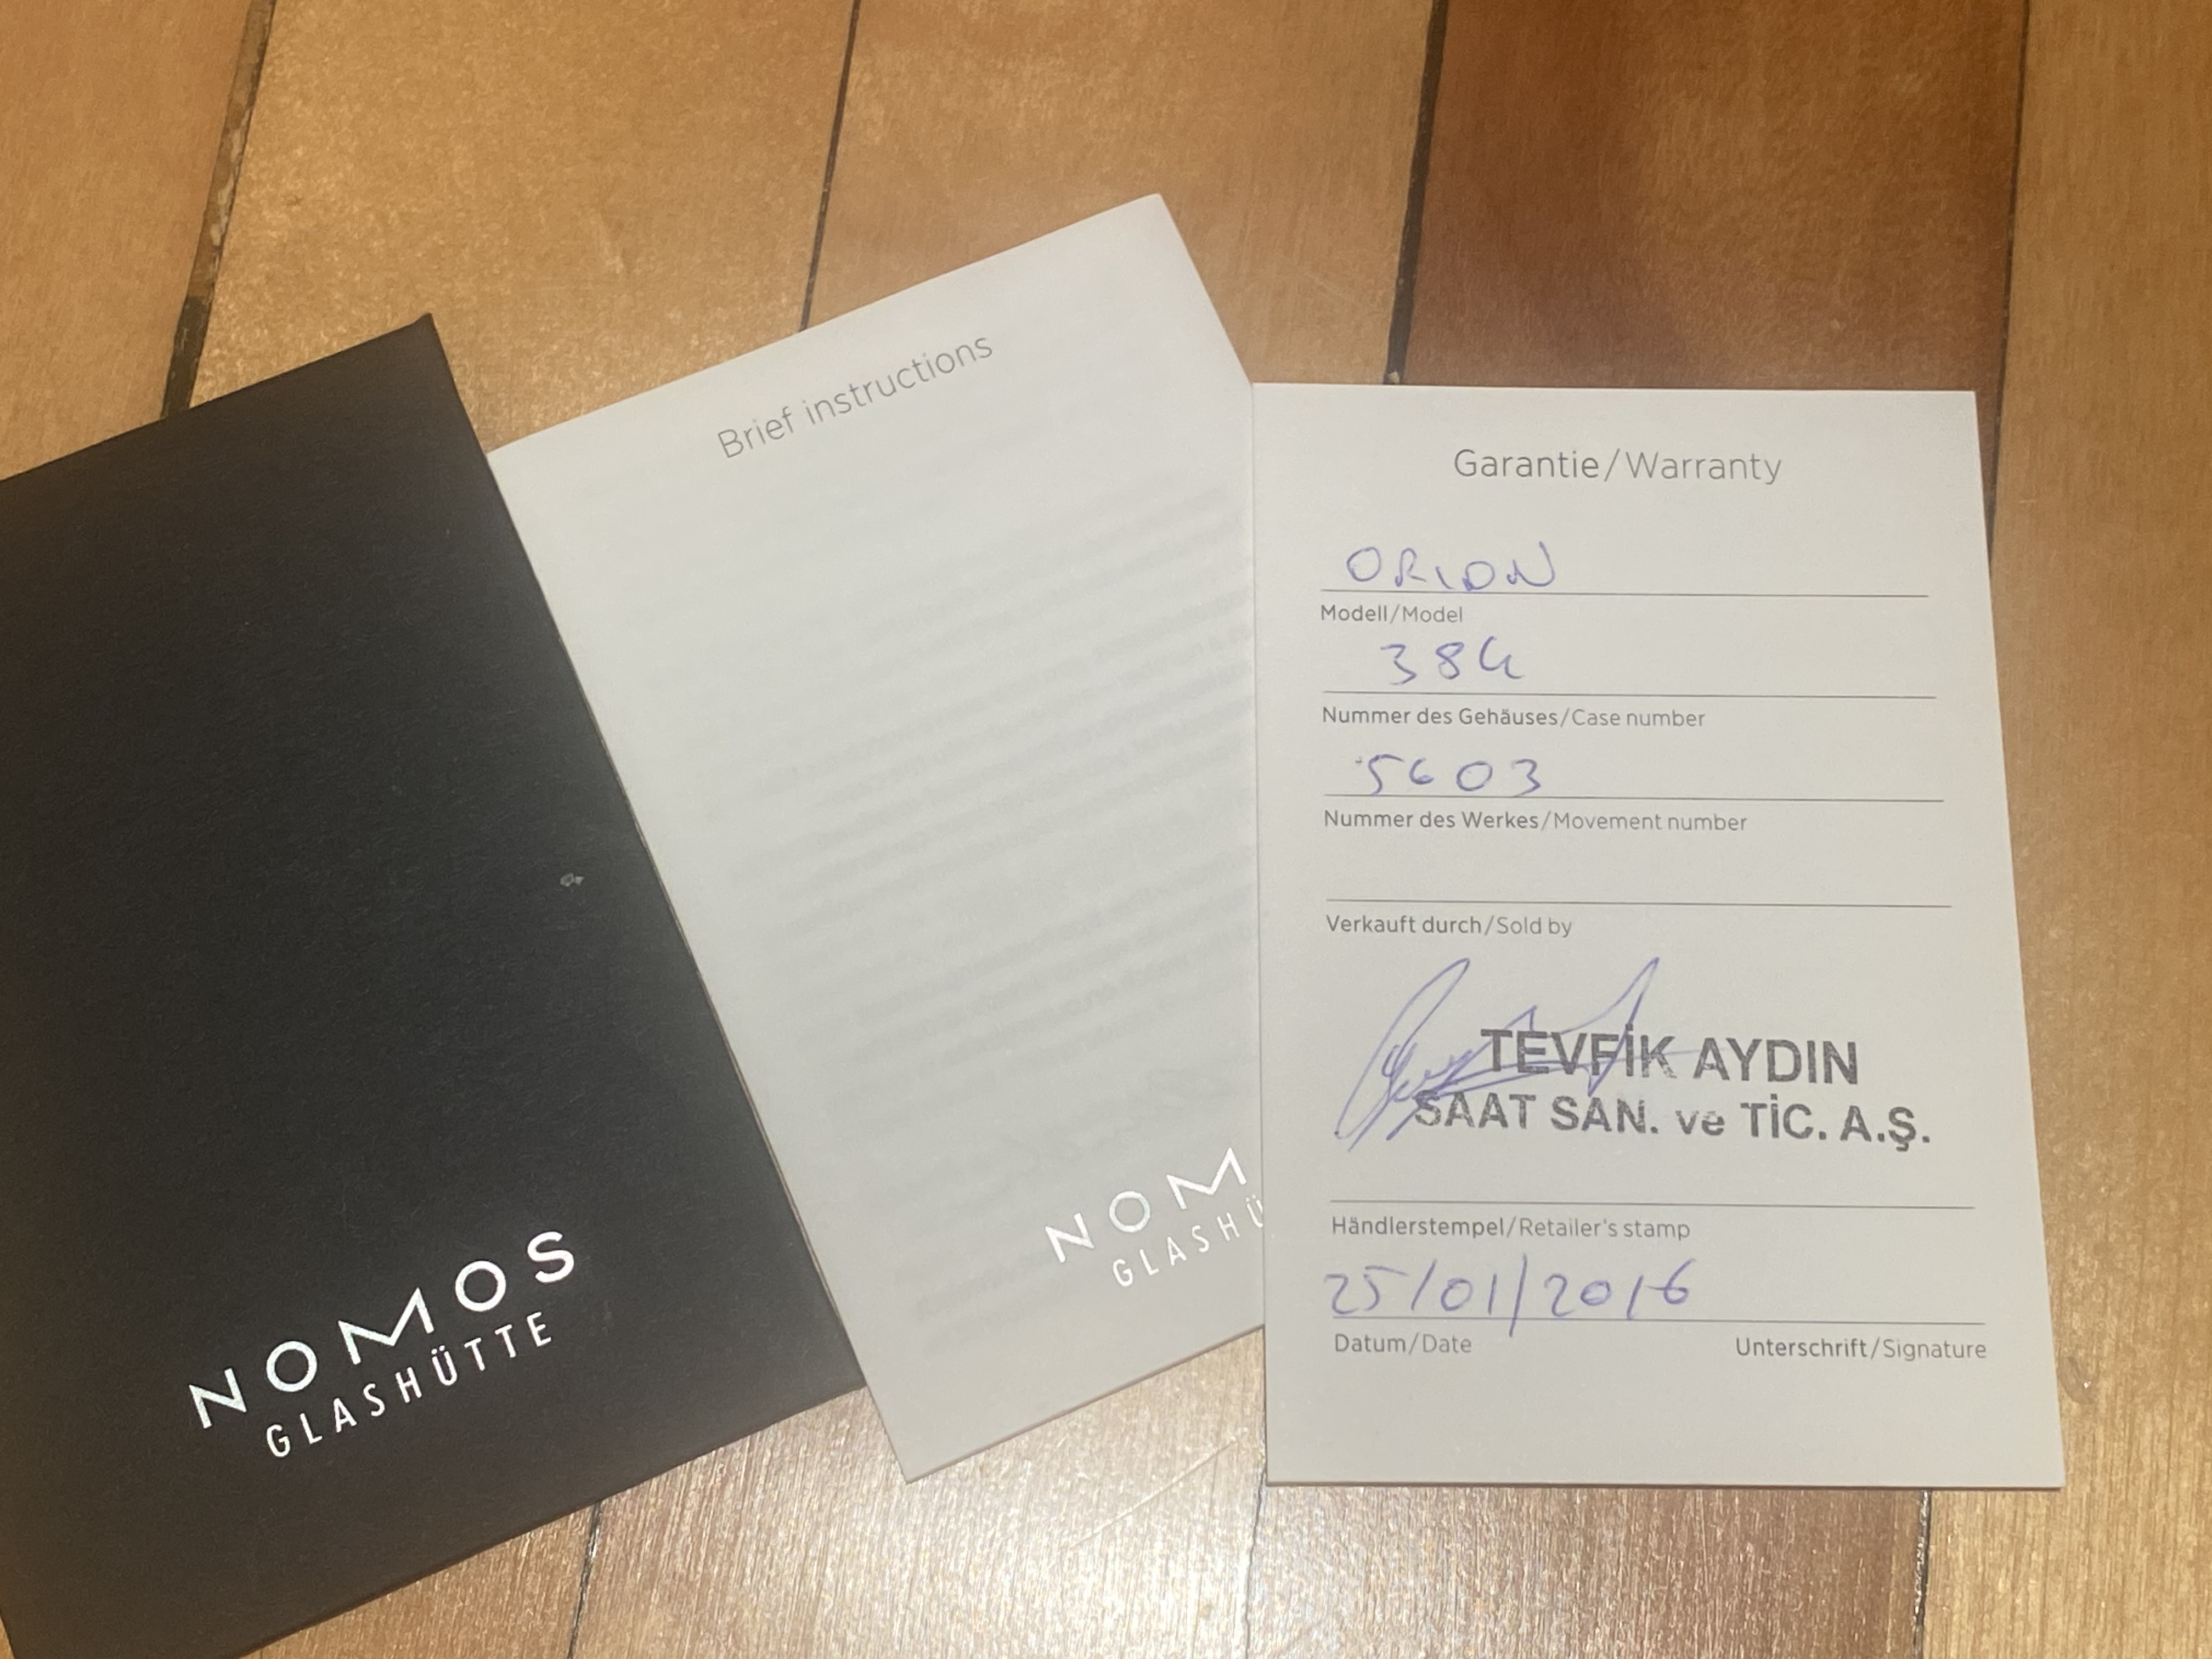 NOMOS
GLASHÜTTE
Brief instructions
NOM
GLASHÜ
Garantie/Warranty
ORION
Modell/Model
384
Nummer des Gehäuses/Case number
5603
Nummer des Werkes/Movement number
Verkauft durch/Sold by
TEVFİK AYDIN
SAAT SAN. ve TİC. A.Ş.
Händlerstempel/Retailer's stamp
25/01/2016
Datum/Date Unterschrift/Signature